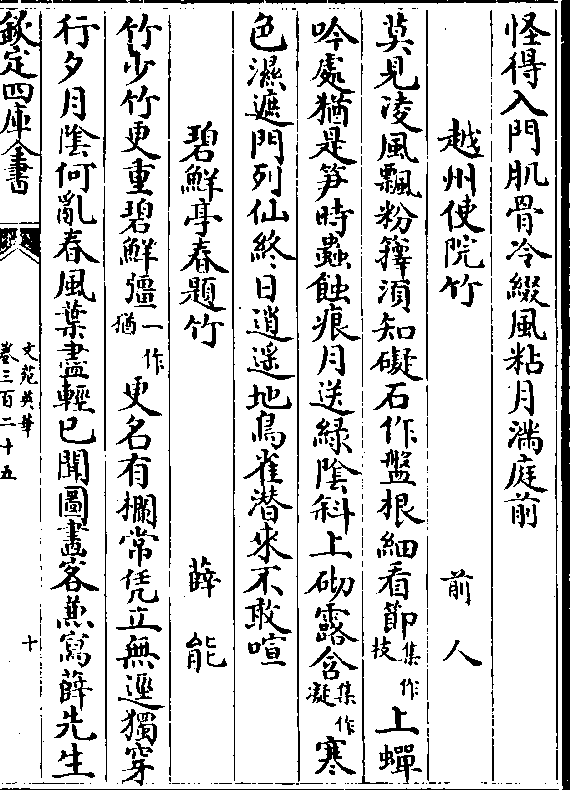 怪得入門肌骨冷綴風粘月滿庭前
越州使院竹　前人
莫見凌風飄粉籜須知礙石作盤根細看節集作技上蟬
吟處猶是笋時蟲蝕痕月送緑陰斜上砌露含集作凝寒
色濕遮門列仙終日逍遥地鳥雀潜來不敢喧
碧鮮亭春題竹　薛能
竹少竹更重碧鮮彊一作猶更名有欄常凭立無逕獨穿
行夕月陰何亂春風葉盡輕已聞圖畫客兼寫薛先生
欽定四庫全書
文苑英華
卷三百二十五
十